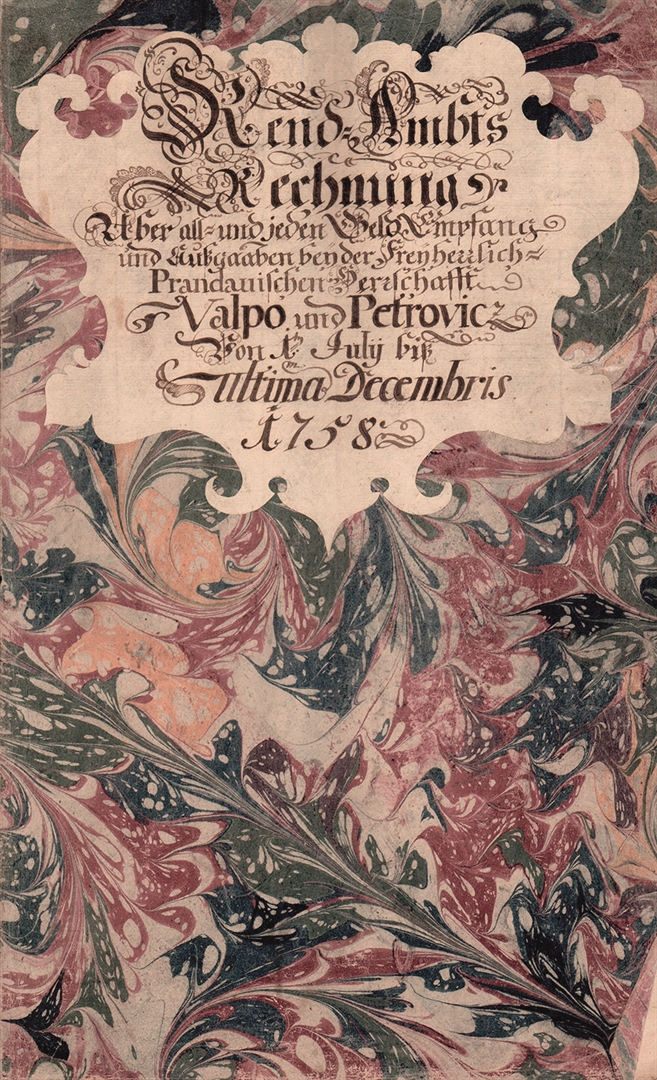 Rend=Ambts
Rechnung
Uber all= und jeden Geld Empfang
und Außgaaben bey der Freyherrlich=
Prandauischen Herrschafft
Valpo und Petrovicz
Von 1ᵗⁿ July biß
Ultima Decembris
1758